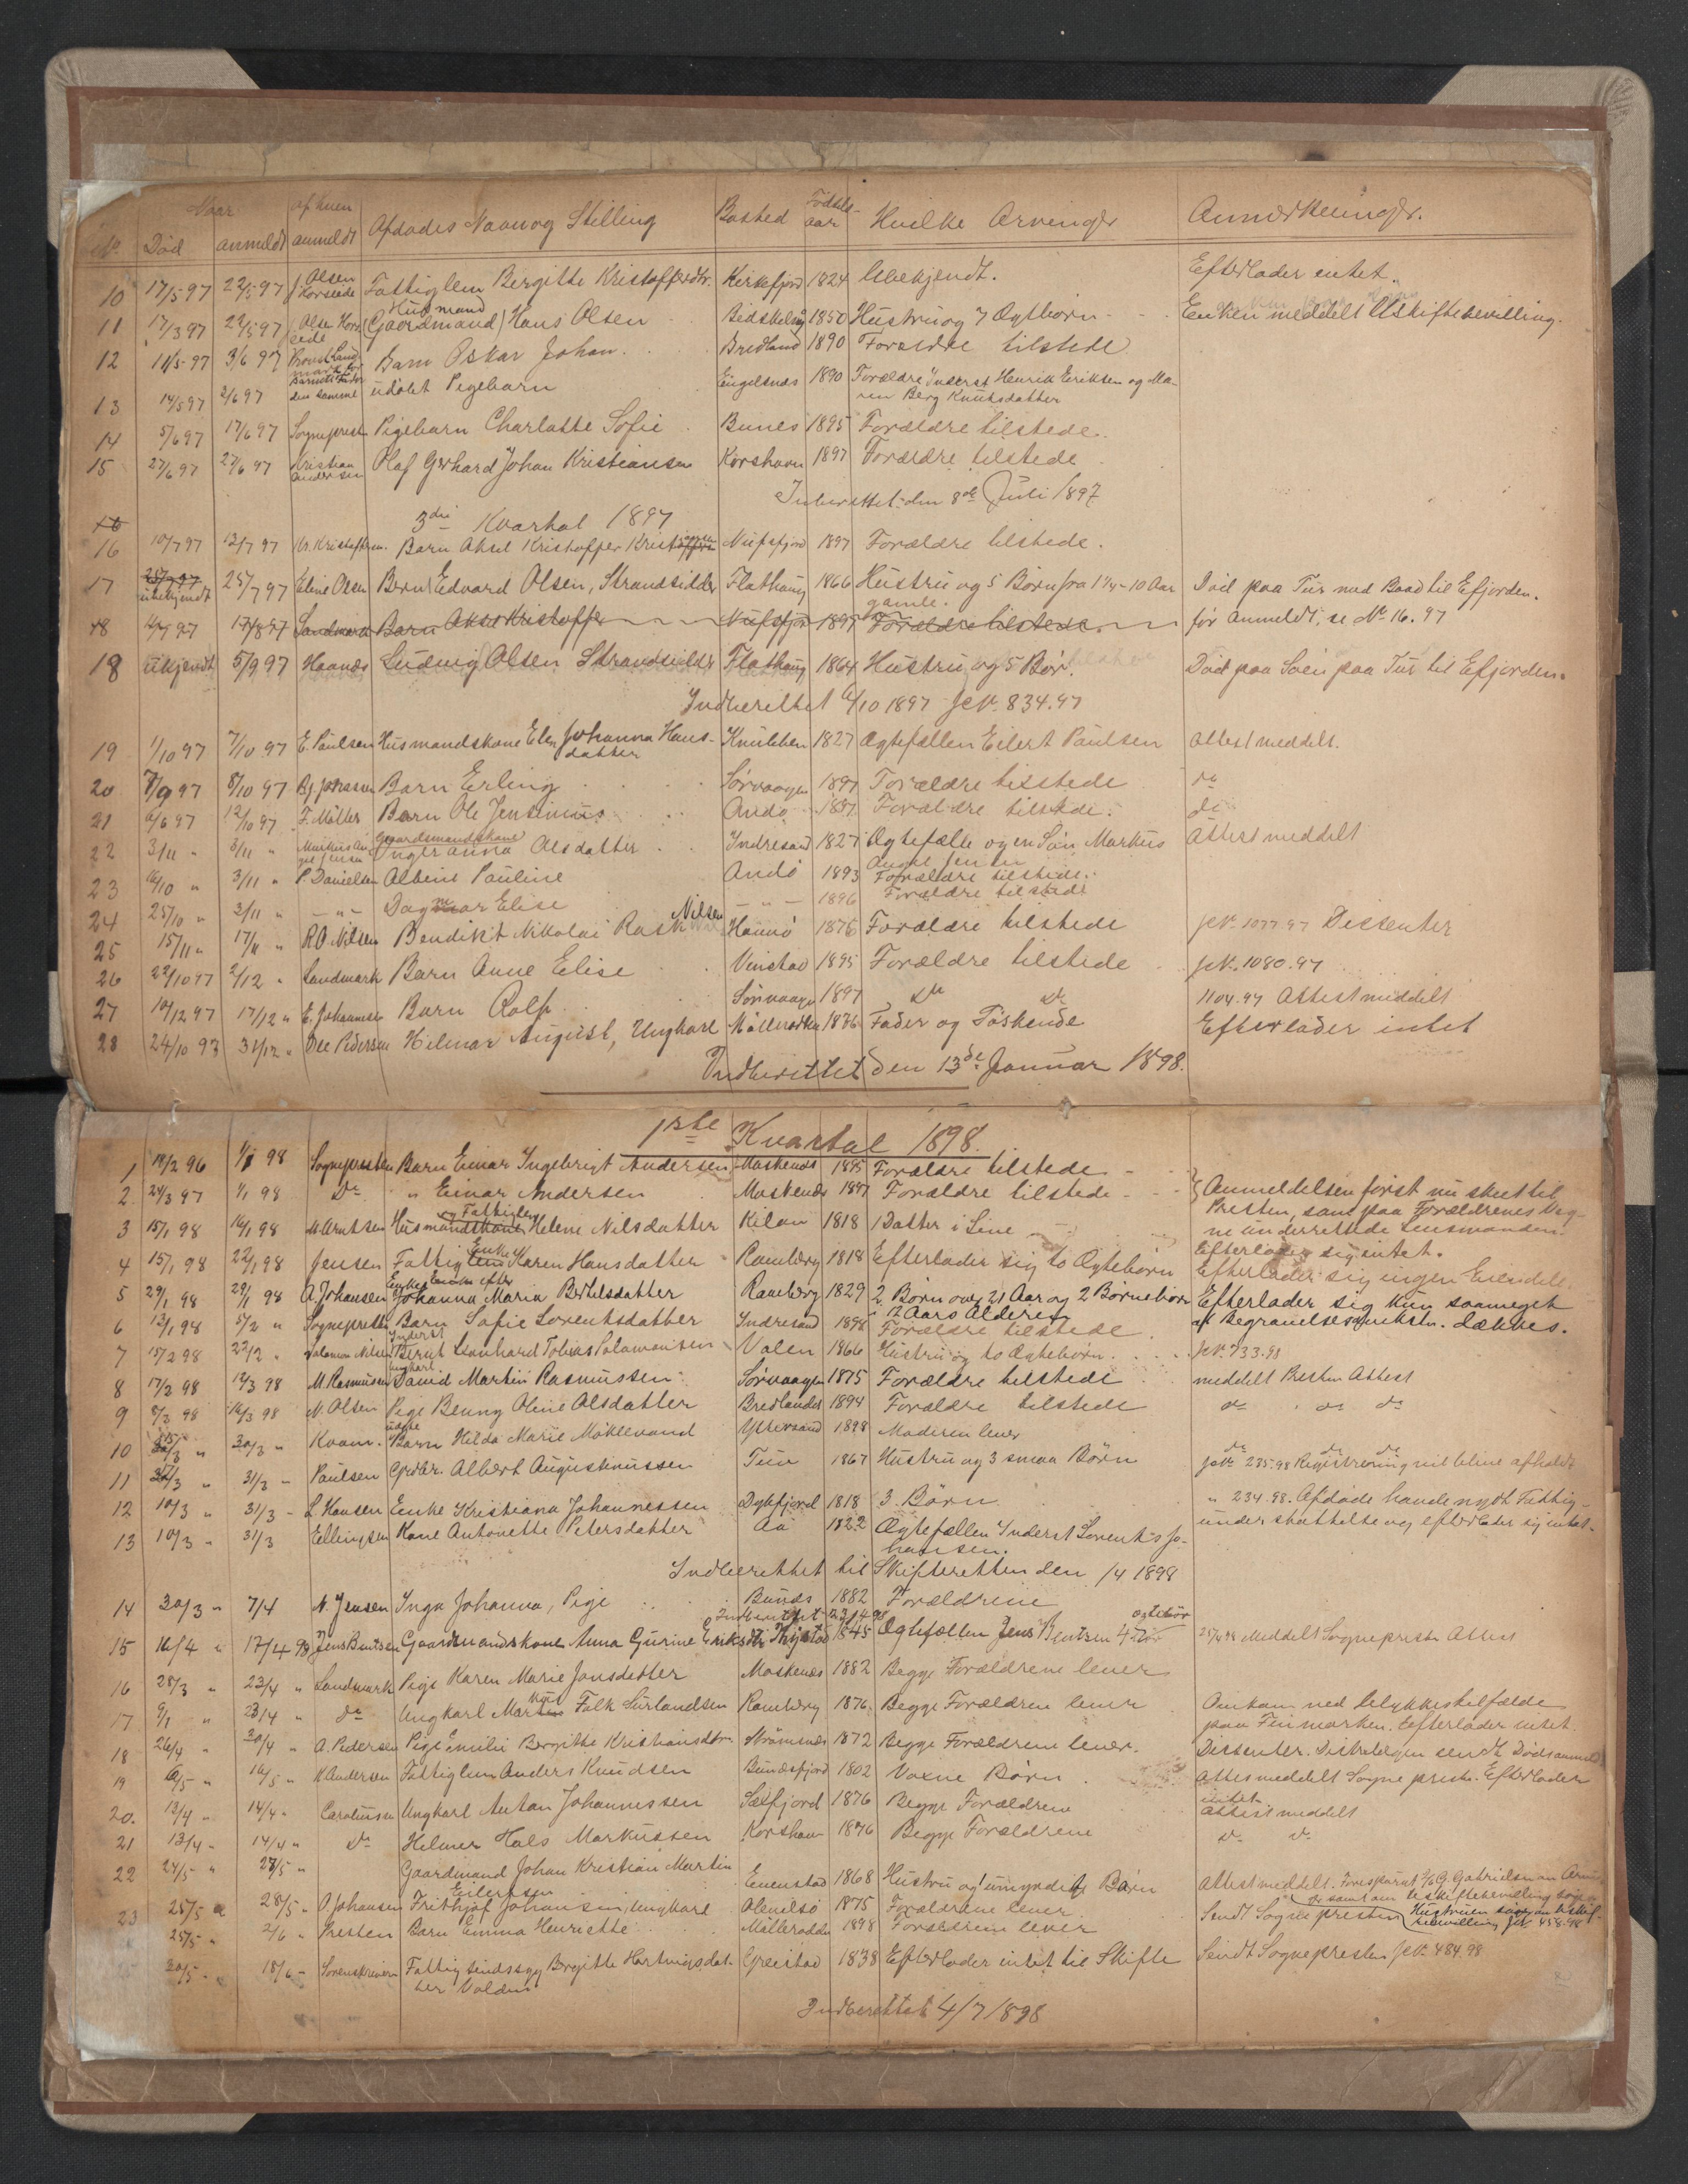 No. Naar Død anmeldt af hvem anmeldt Afdødes Navn og Stilling Bosted Fødselsaar Hvilke Arvinger Anmærkninger.
10 17/5 97 22/5 97 J Olsen Horseide Fattiglem Bergitte Kristoffersdtr. Kirkefjord 1824 Ubekjendt. Efterlader intet.
11 17/3 97 22/5 97 Olsen Horseide Husmand (Gaardmand) Hans Olsen 1850 Hustru og 7 Ægtebørn Enken meddelt Uskiftebevilling.
12 11/5 97 3/6 97 Barn Oskar Johan. Bredland 1890 Forældre tilstede
13 14/5 97 2/6 97 Barnets Fader den samme udøbt Pigebarn Engelsnæs 1890 Forældre Inderst Henrik Eriksen og Maren Berg Knutsdatter
14 5/6 97 17/6 97 Sogneprest Pigebarn Charlotte Sofie Bunes 1895 Forældre tilstede.
15 27/6 97 27/6 97 Kristian Andersen Olaf Gerhard Johan Kristiansen Korshavn 1897 Forældre tilstede
Inberettet den 8de Juli 1897
3die Kvartal 1897
16 10/7 97 12/7 97 Kr. Kristoffersen. Barn Aksel Kristoffer Nufsfjord 1897 Forældre tilstede.
17 25/7 97 ubekjendt 25/7 97 Eline Olsen Bernt Edvard Olsen, Strandsidder Flathaug 1866 Hustru og 5 Børn fra 1 1/4 - 10 Aar gamle. Død paa Tur med Baad til Efjorden.
18 17/8 97 Landmark Barn Aksel Kristoffer Nufsfjor 1897 Forældre tilstede. før anmeldt, se No 16. 97
18 ukjendt 5/9 97 Haanæs Ludvig Olsen Strandsidder Flathaug 1864 Hustru og 5 Bør. Død paa Søen paa Tur til Efjorden.
Indberettet 4/10 1897 JN. 834.97
19 1/10 97 7/10 97 E. Paulsen Husmandskone Elen Johanna Hansdatter Knuteben 1827 Ægtefællen Eilert Paulsen attest meddelt.
20 7/9 97 8/10 97 Barn Erling Sørvaagen 1897 Forældre tilstede do
21 6/6 97 12/10 97 F. Møller Barn Ole Jentinius Andø 1897 Forældre tilstede. do
22 3/11 " 3/11 " Markus Angel Jensen Gaardsmandskone Inger Anna Olsdatter Indresand 1827 Ægtefælle og en Søn Markus Angel Jensen Attest meddelt
23 16/10 " 3/11 " P. Danielsen Albine Pauline Andø 1893 Forældre tilstede.
24 25/10 " 3/11 " - " - Dagmar Elise - " - 1896 Forældre tilstede
25 15/11 " 17/11 " R O Nilsen Bendikt Nikolai Rask Nilsen Hamnø 1876 Forældre tilstede JN. 1077.97 Dissenter
26 22/10 97 2/12 " Landmark Barn Anne Elise Vinstad 1895 Forældre tilstede JN. 1080.97
27 10/12 97 17/12 " E. Johannesen Barn Rolf Sørvaagen 1897 do do 1104.97 Attest meddelt
28 24/10 97 31/12 " Ole Pedersen Hilmar August, Ungkarl Møllerodden 1876 Fader og Søskende Efterlader intet
Indberettet den 13de Januar 1898.
1ste Kvartal 1898.
1 19/2 96 1/1 98 Sognepresten Barn Einar Ingebrigt Andersen Moskenæs 1895 Forældre tilstede
2 24/3 97 1/1 98 Do " Einar Andersen Moskenæs 1897 Forældre tilstede Anmeldelsen først nu skeet til Presten, som paa Forældrenes Vegne underrettede Lensmanden.
3 15/1 98 16/1 98 M Arntsen Husmandskone og Fattiglem Helene Nilsdatter Kilan 1818 1 Datter i Live Efterlader sig intet.
4 15/1 98 22/1 98 Jensen Fattiglem Enke Karen Hansdatter Ramberg 1818 Efterlader sig to Ægtebørn Efterlader sig ingen Eiendele.
5 29/1 98 29/1 98 A. Johansen Enke efter Johanna Maria Bertelsdatter Ramberg 1829 2 Børn over 21 Aar og 2 Børnebørn i 12 Aars Alderen Efterlader sig kun saameget at Begravelsesomkostn. dækkes.
6 13/1 98 5/2 " Sognepresten Barn Sofie Lorentsdatter Indresand 1898 Forældre tilstede
7 15/2 98 22/2 " Salomon Nilsen Inderst Bernt Leonhard Tobias Salamonsen Valen 1866 Hustru og to Ægtebørn. JN. 133.98
8 17/2 98 12/3 98 M. Rasmussen Ungkarl David Martin Rasmussen Sørvaagen 1875 Forældre tilstede meddelt Presten Attest
9 8/3 98 16/3 98 N. Olsen Pige Benny Oline Olsdatter Bredlandet 1894 Forældre tilstede do do do
10 " 30/3 " Kvam. uægte Barn Hilda Marie Møklevand Ytresand 1898 Moderen lever do do do
11 " 31/3 " Paulsen Grdbr. Albert Augustinussen Tuv 1867 Hustru og 3 smaa Børn JN. 235.98 Registrering vil blive afholdt
12 10/3 " 31/3 - L. Hansen Enke Kristiana Johannessen Dybfjord 1818 3 Børn " 234.98. Afdøde havde nydt Fattigunderstøttelse og efterlader sig intet.
13 10/3 - 31/3 Ellingsen Kone Antonette Petersdatter Aa 1822 Ægtefællen Inderst Lorents Johansen.
Indberettet til Skifteretten den /4 1898
14 30/3 " 7/4 N. Jensen Inga Johanna, Pige Bunæs 1882 Forældrene
Indberettet 23/4 98
15 16/4 " 17/4 98 Jens Bentsen Gaardmandskone Anna Gurine Eriksdtr 1845 Ægtefællen Jens Bentsen 4 ægtebør 25/4 98 Meddelt Sognepresten Attest
16 28/3 " 23/4 " Landmark Pige Karen Marie Jonsdatter Moskenæs 1882 Begge Forældrene lever
17 9/1 " 23/4 " do Ungkarl Falk Surlandsen Ramberg 1876. Begge Forældrene lever Omkom ved Ulykkestilfælde paa Finmarken. Efterlader intet.
18 26/4 " 30/4 " A. Pedersen Pige Emilie Bergitte Kristiansdtr. Strømsnæs 1872 Begge Forældrene lever. Dissenter. Distriktslægen sendt Dødsanmeld
19 " 16/5 " K Andersen Fattiglem Anders Knudsen Bunæsfjord 1802 Voxne Børn attest meddelt Sognepresten. Efterlader intet
20. 13/4 " 14/4 " Caroliussen Ungkarl Anton Johannessen Selfjord 1876 Begge Forældrene Attest meddelt
21 13/4 - 14/4 " do Helmer Hals Markussen Korshavn 1876 Begge Forældrene do do
22 24/5 " 27/5 " Gaardmand Johan Kristian Martin Eilertsen Evenstad 1868 Hustru og 1 umyndigt Barn Attest meddelt.
23 25/5 28/5 " O. Johansen Frithjof Johansen, Ungkarl Olenilsø 1875 Forældrene lever Sendt Sognepresten
25/5 " 2/6 " Presten Barn Emma Henriette Møllerodden 1898 Forældrene lever
20/5 - 18/6 - Sorenskriveren Fattig sindssyg Bergitte Hartvigsdatter Volden 1838 Efterlader intet til Skifte Sendt Sognepresten JN. 484.98
Indberettet 4/7 1898